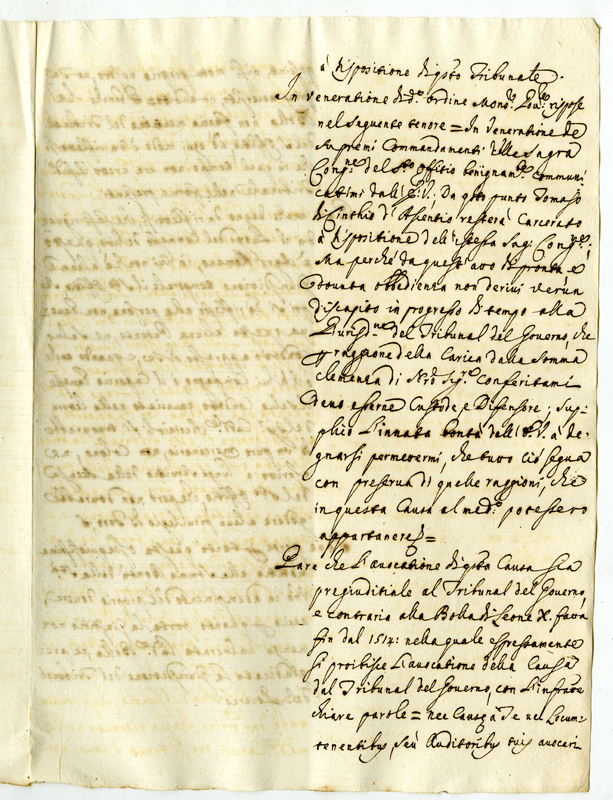 à dispositione di q.sto Tribunale.
In veneratione di d.o ordine Mons.r Gov.re rispose
nel seguente tenore = In veneratione de
supremi Commandamenti della Sagra
Cong.ne del S.to Offitio benignam.te communi
catimi dall' V., Da q.sto punto Tomaso
di Cinthio d'Ascentio resterà Carcerato
à dispositione dell'istessa Sag: Cong.ne,
Ma perche da quest'atto di pronta, e
dovuta obbedienza non derivi verun
discapito in progresso di tempo alla
Giurisd.ne del Tribunal del Governo, che
p raggione della Carica dalla somma
clemenza di N'ro Sig.re Conferitami
devo esserne Custode, e Difensore; sup-
plico l'innata bontà dell' V. à de-
gnarsi permettermi, che tutto ciò segua
con preserva di quelle raggioni, che
in questa Causa al med.o potessero
appartenere =
Pare che l'avocatione di q.sta Causa sia
pregiuditiale al Tribunal del Governo,
e contraria alla Bolla di Leone X. fatta
fin dal 1514: nella quale espressamente
si proibisce l'avocatione della Causa
dal Tribunal del Governo, con l'infratte
chiare parole = nec Causa à Te nec Locum-
tenentibus, seù Auditoribus tuis avocari